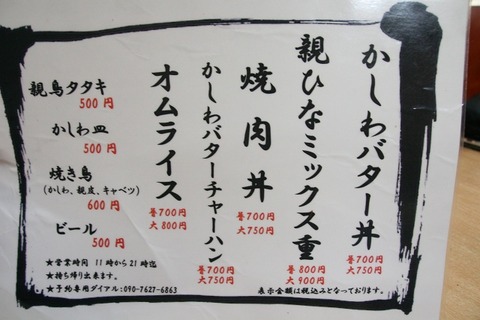 かしわバター丼
普700円
大750円
親ひなミックス重
普800円
大900円
焼肉丼
普700円
大750円
かしわバターチャーハン
普700円
大750円
オムライス
普700円
大800円
親鳥タタキ
500円
かしわ皿
500円
焼き鳥
(かしわ、親皮、キャベツ)
600円
ビール
500円
★営業時間 11時から21時迄
★持ち帰り出来ます。
★予約専用ダイアル:090-7627-6863
表示金額は税込みとなっております。